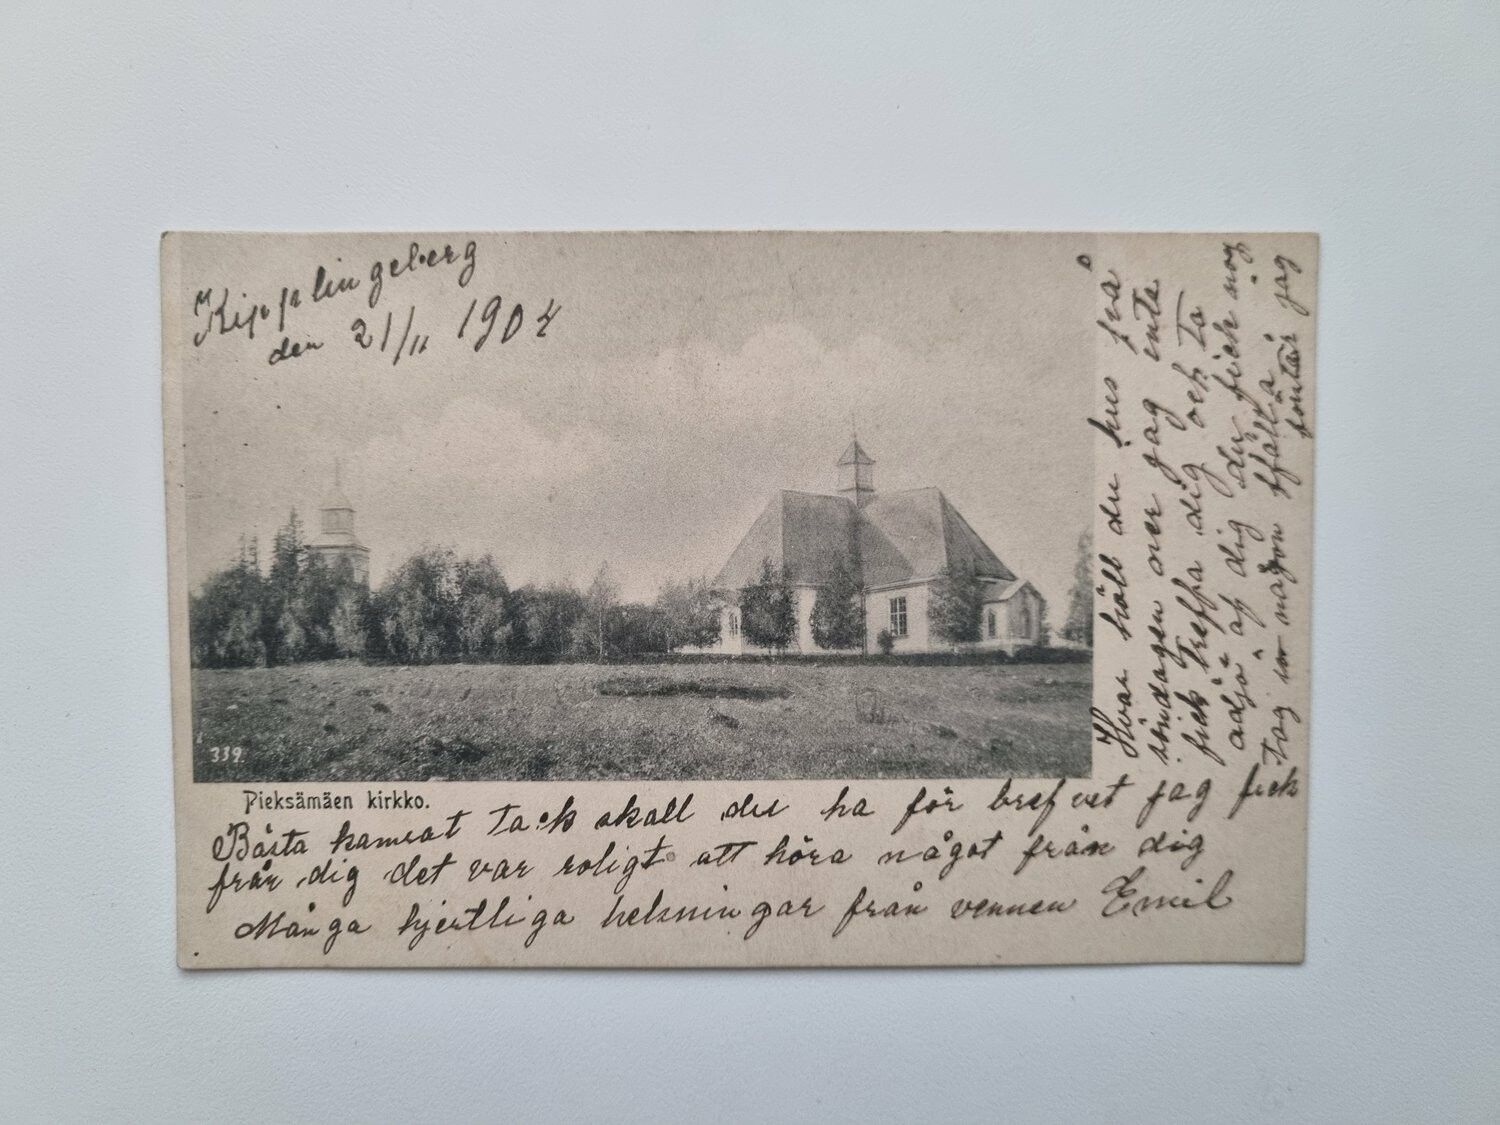 Kipplingeberg
den 21/11 1904
339.
Pieksämäen kirkko.
Bästa kamrat tack skall du ha för bref vet jag fick
från dig det var roligt att höra något från dig
Många hjertliga helsningar från vennen Emil
Hvar höll du hus på
söndagen över jag inte
fick treffa dig och ta
adjö af dig du fick nog
tag någon
jag